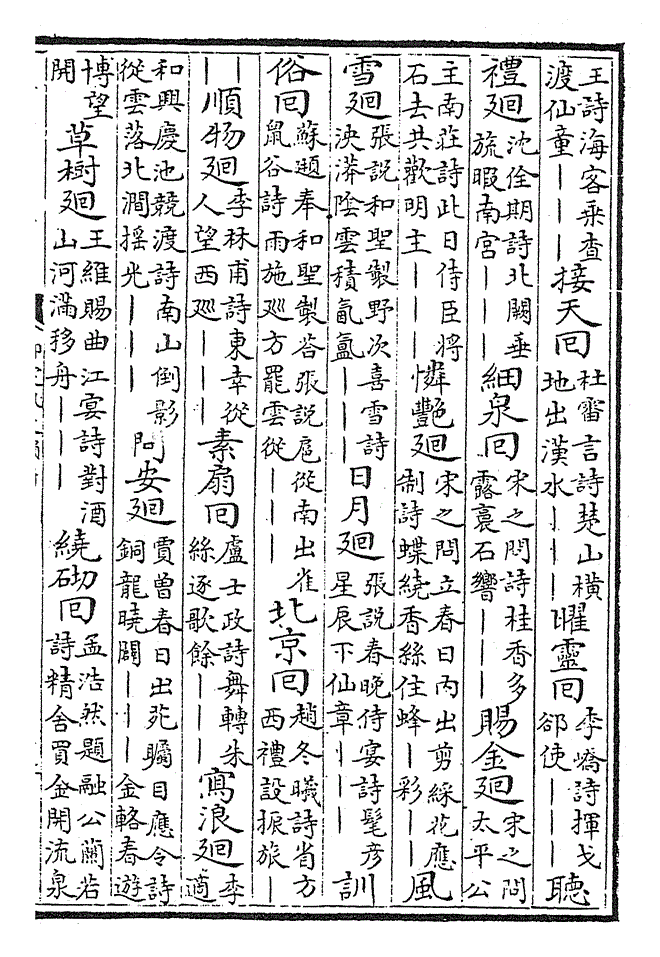 王詩海客乗查渡仙童｜｜｜接天回杜審言詩楚山橫地出漢水｜｜｜曜靈回李嶠詩揮戈郤使｜｜｜聽
禮廻沈佺期詩北闕垂旒暇南宮｜｜｜細泉回宋之問詩桂香多露裛石響｜｜｜賜金廻宋之問太平公
主南莊詩此日侍臣將石去共歡明主｜｜｜憐艷廻宋之問立春日内出剪綵花應制詩蝶繞香絲住蜂｜彩｜｜風
雪廻張說和聖製野次喜雪詩泱漭隂雲積氤氲｜｜｜日月廻張說春晚侍宴詩髦彦星辰下仙章｜｜｜訓
俗回蘇頲奉和聖製荅張說扈從南出雀鼠谷詩雨施廵方罷雲從｜｜｜北京回趙冬曦詩省方西禮設振旅｜
｜｜順物廻李林甫詩東幸從人望西廵｜｜｜素扇回盧士政詩舞轉朱絲逐歌餘｜｜｜寫浪廻李適
和興慶池競渡詩南山倒影從雲落北澗摇光｜｜｜問安廻賈曾春日出苑矚目應令詩銅龍曉闢｜｜｜金輅春遊
博望開草樹廻王維賜曲江宴詩對酒山河滿移舟｜｜｜繞砌回孟浩然題融公蘭若詩精舍買金開流泉